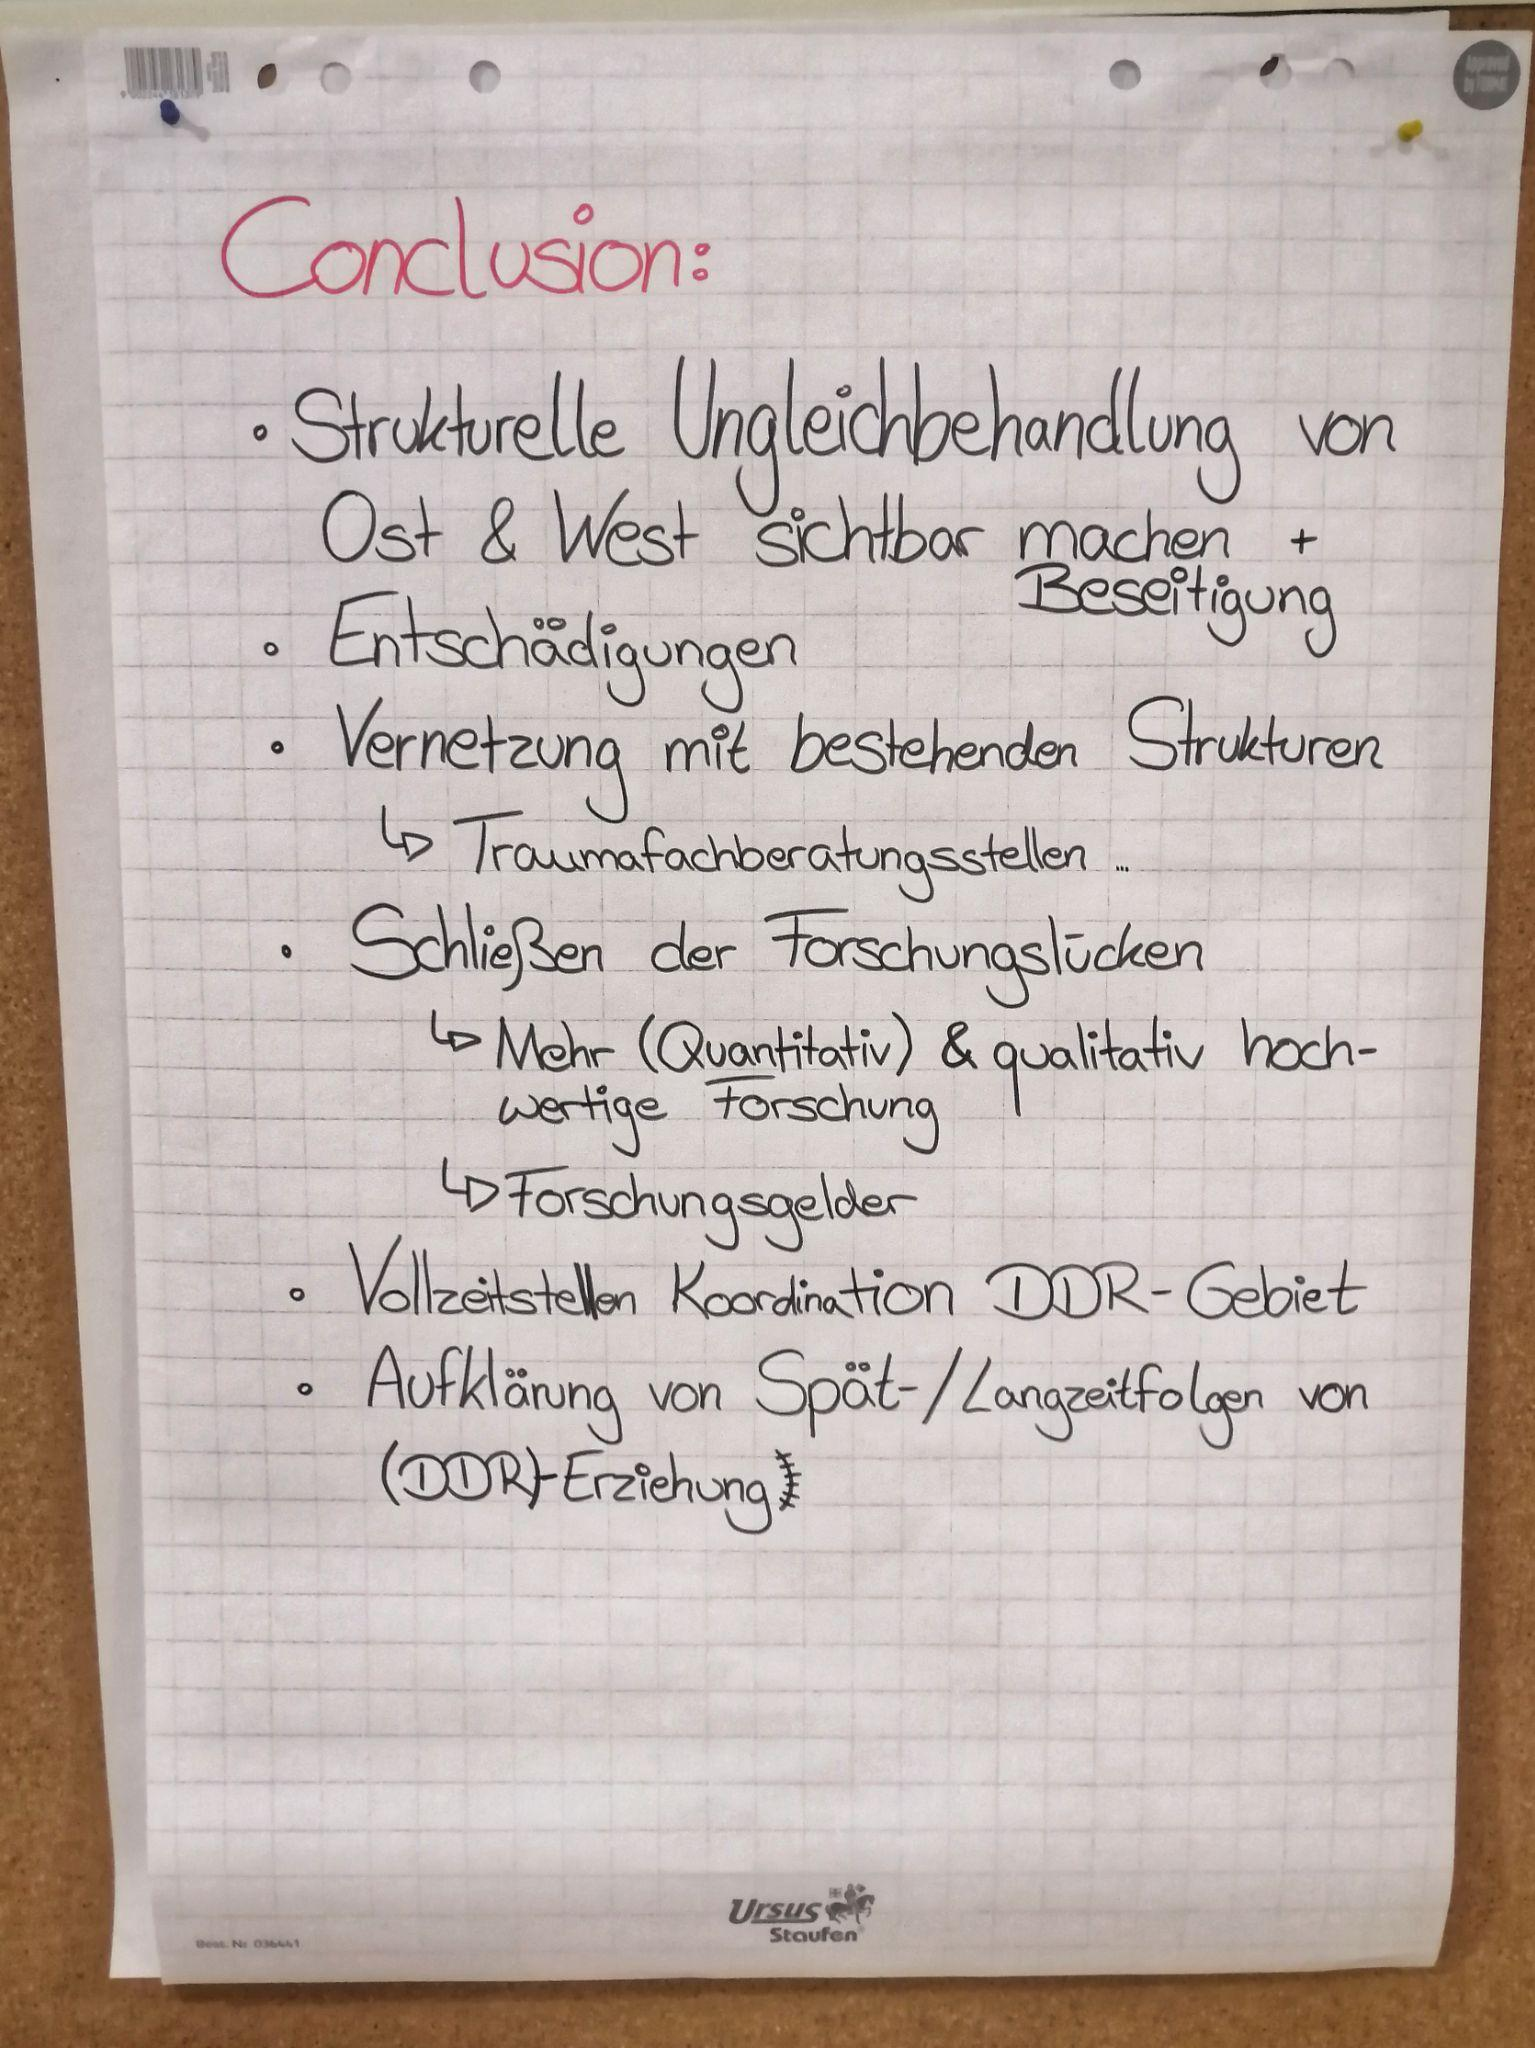 Conclusion:
• Strukturelle Ungleichbehandlung von
Ost & West sichtbar machen +
Beseitigung
• Entschädigungen
• Vernetzung mit bestehenden Strukturen
↳ Traumafachberatungsstellen ...
• Schließen der Forschungslücken
↳ Mehr (Quantitativ) & qualitativ hoch-
wertige Forschung
↳ Forschungsgelder
• Vollzeitstellen Koordination DDR-Gebiet
• Aufklärung von Spät-/Langzeitfolgen von
(DDR)-Erziehung
Ursus
Staufen
Best. Nr. 036441